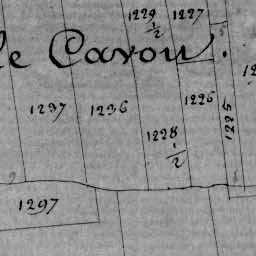 1229 1/2
1227
le Cavou.
12
1237
1236
1226
1225
1228 1/2
1297